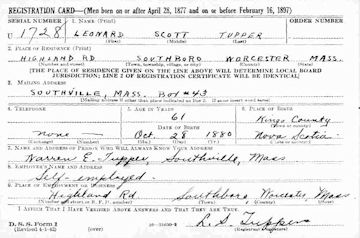 REGISTRATION CARD—(Men born on or after April 28, 1877 and on or before February 16, 1897)
SERIAL NUMBER 1. NAME (Print) ORDER NUMBER
U 1728 LEONARD SCOTT TUPPER
(First) (Middle) (Last)
2. PLACE OF RESIDENCE (Print)
HIGHLAND RD SOUTHBORO WORCESTER MASS.
(Number and street) (Town, township, village, or city) (County) (State)
[THE PLACE OF RESIDENCE GIVEN ON THE LINE ABOVE WILL DETERMINE LOCAL BOARD
JURISDICTION; LINE 2 OF REGISTRATION CERTIFICATE WILL BE IDENTICAL]
3. MAILING ADDRESS
SOUTHVILLE, MASS. BOX #43
[Mailing address if other than place indicated on line 2. If same insert word same]
4. TELEPHONE 5. AGE IN YEARS 6. PLACE OF BIRTH
61 Kings County
DATE OF BIRTH (Town or county)
none Oct. 28 1880 Nova Scotia
(Exchange) (Number) (Mo.) (Day) (Yr.) (State or country)
7. NAME AND ADDRESS OF PERSON WHO WILL ALWAYS KNOW YOUR ADDRESS
Warren E. Tupper, Southville, Mass.
8. EMPLOYER'S NAME AND ADDRESS
Self-employed.
9. PLACE OF EMPLOYMENT OR BUSINESS
Highland Rd. Southboro Worcester, Mass
(Number and street or R. F. D. number) (Town) (County) (State)
I AFFIRM THAT I HAVE VERIFIED ABOVE ANSWERS AND THAT THEY ARE TRUE.
D. S. S. Form 1 L. S. Tupper
(Revised 4-1-42) (over) (Registrant's signature)